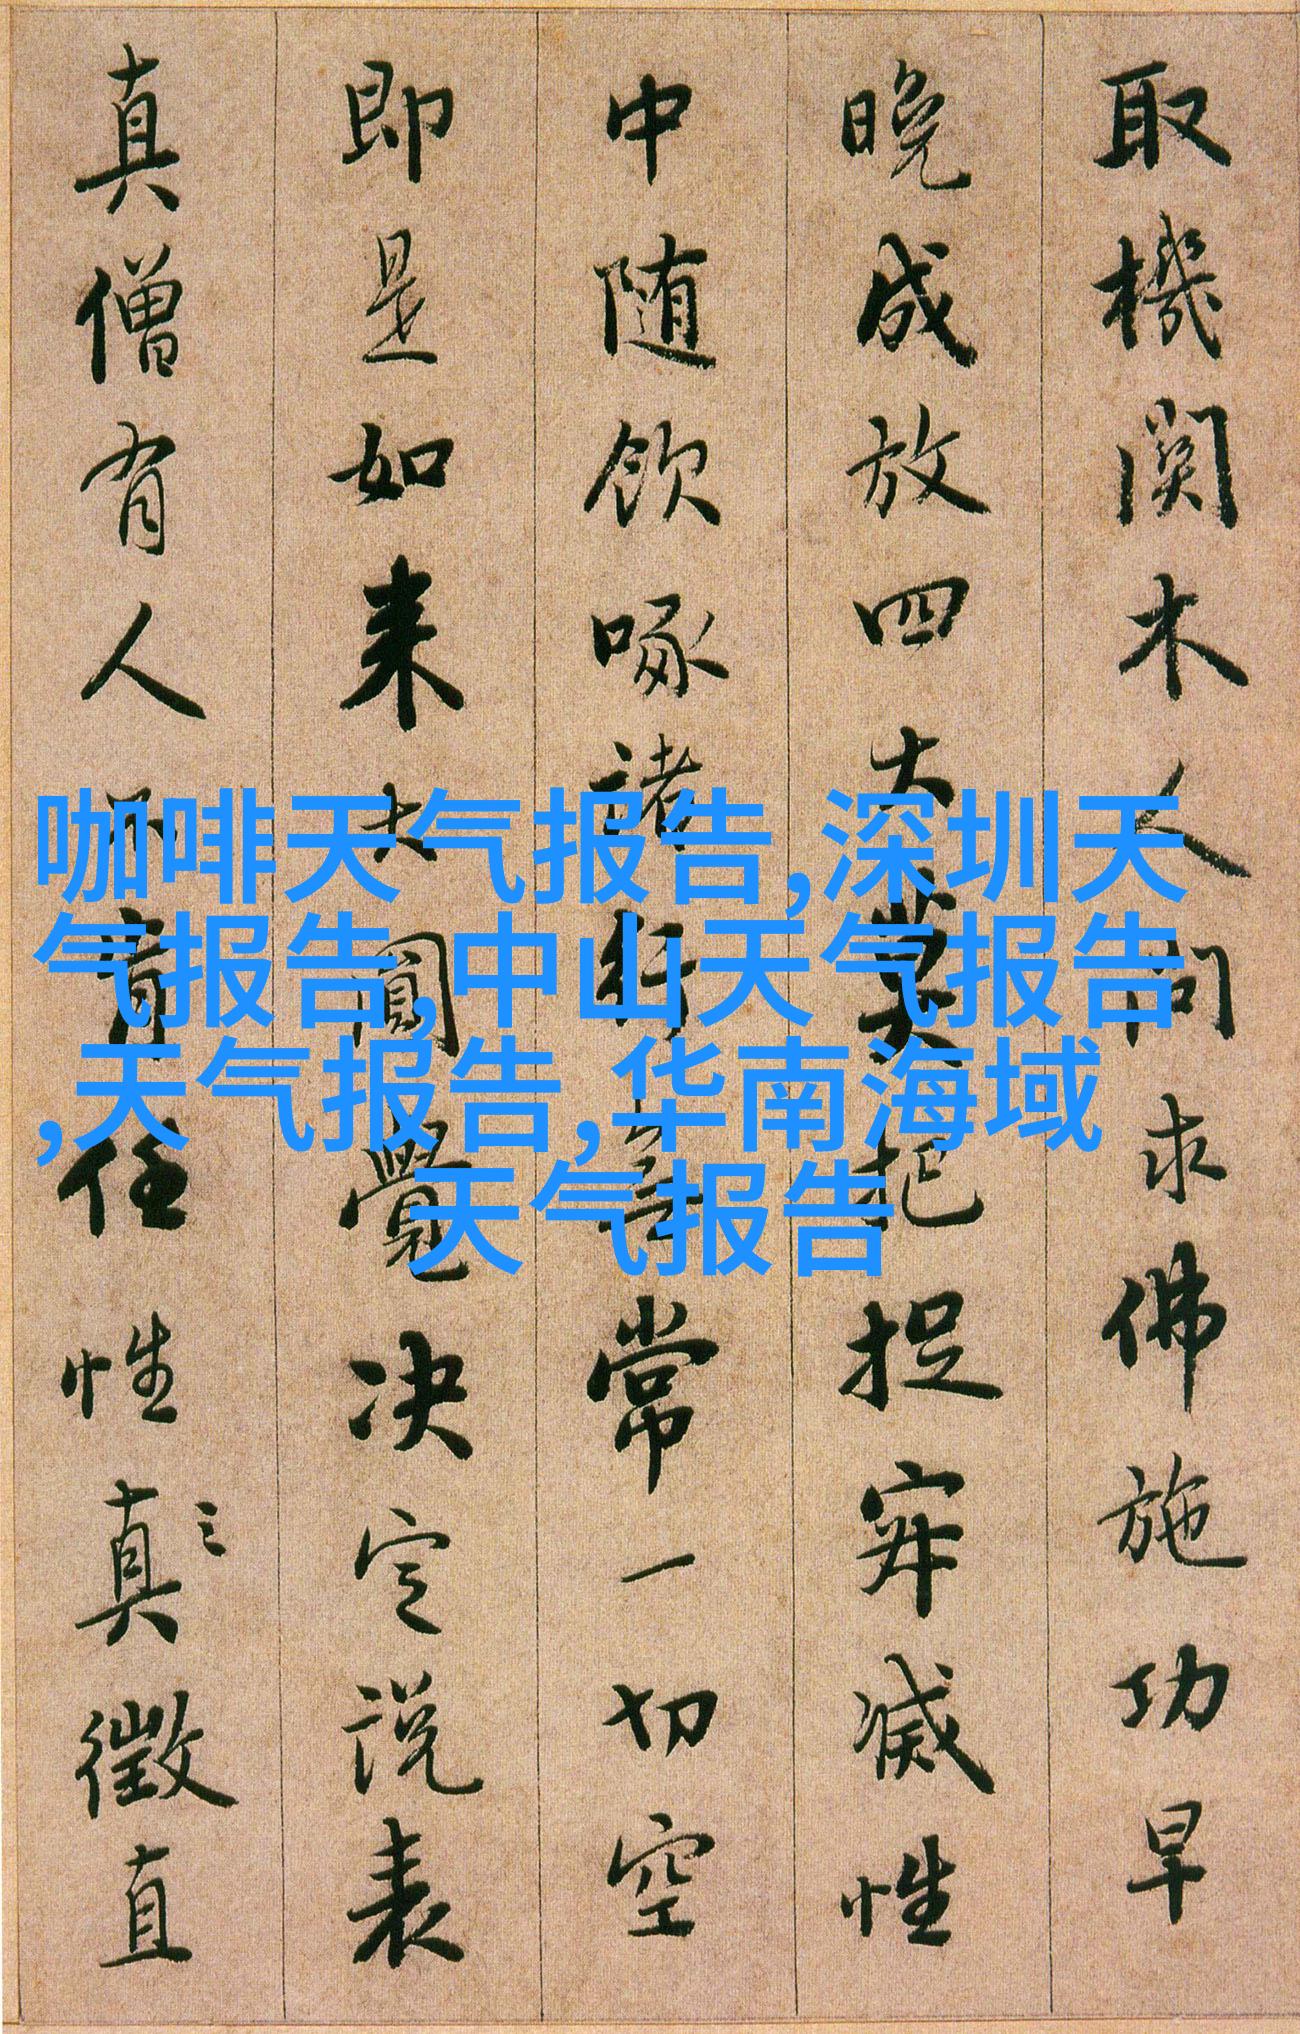 取機関木人問求佛施功早
晚成放四大莫把捉寂滅性
中随飲啄諸行無常一切空
即是如来大圓覺决定說表
真僧有人不肯任性真徵直
咖啡天气报告,深圳天
气报告,中山天气报告
,天气报告,华南海域
天气报告